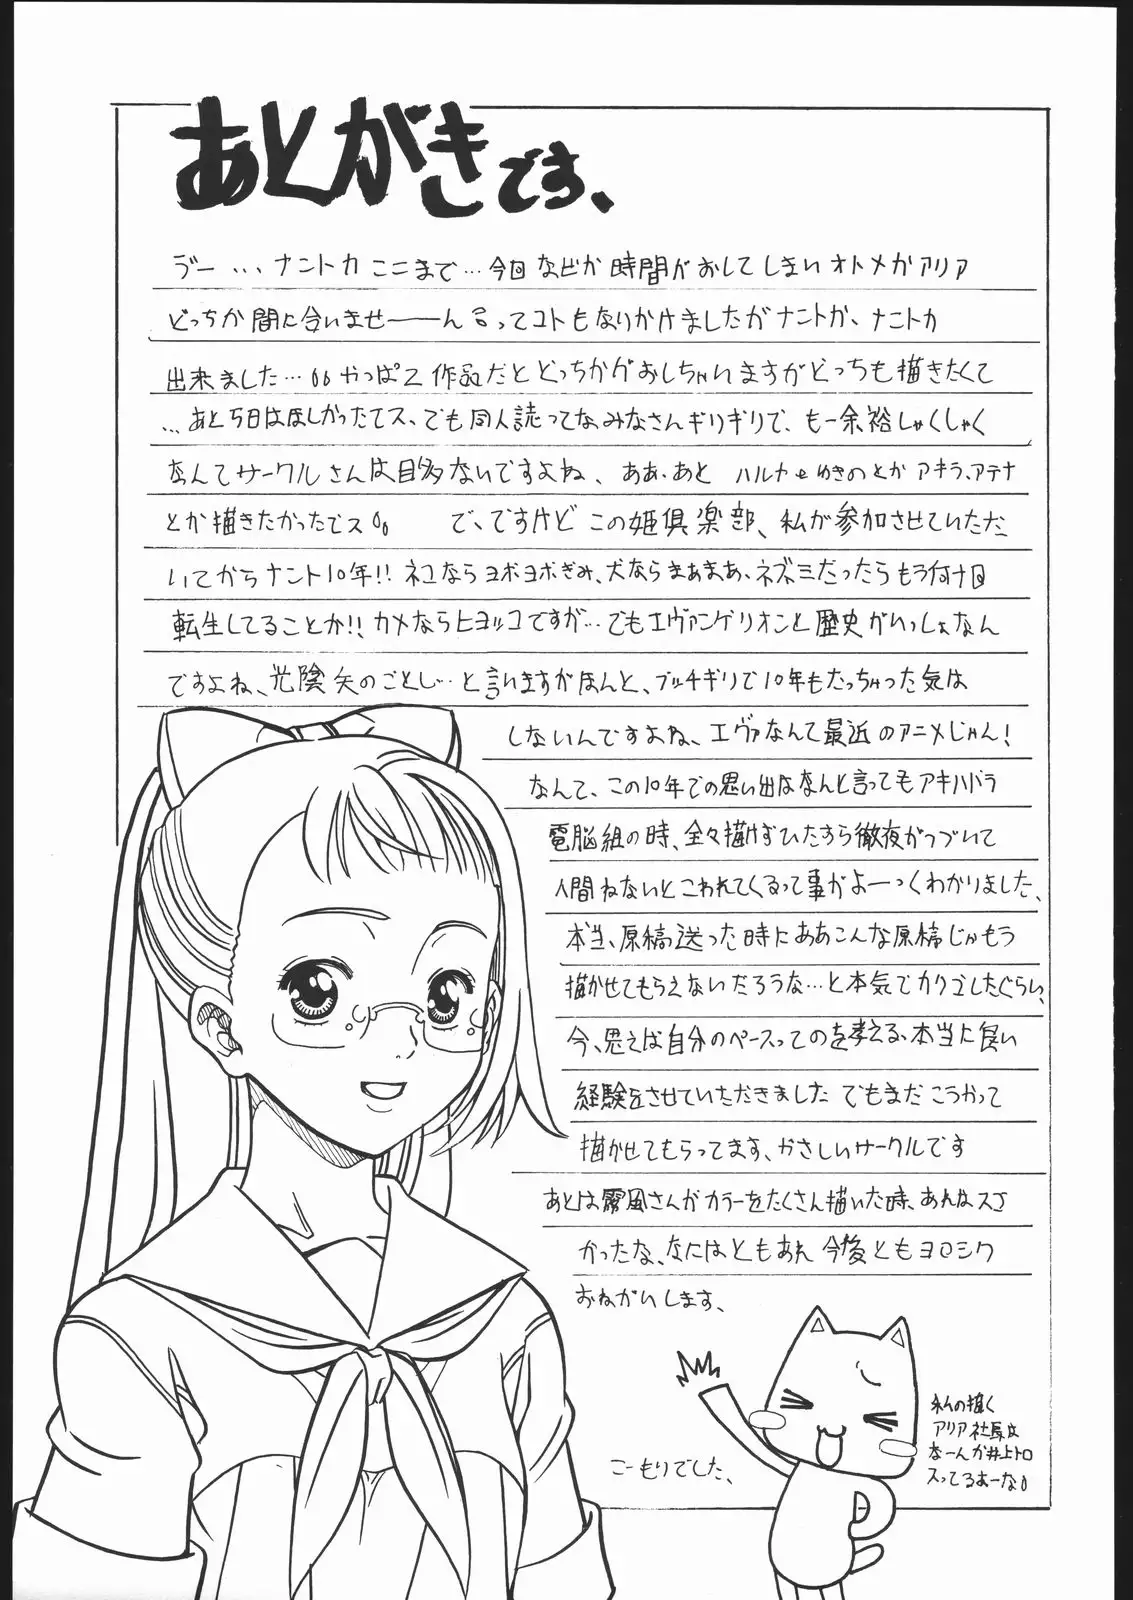 あとがきです、
う゛ー...ナントカここまで...今回なぜか時間がおしてしまいオトメかアリア
どっちか間に合いませーーん!ってコトもなりかけましたがナントか、ナントカ
出来ました...。やっぱ2作品だとどっちかがおしちゃいますがどっちも描きたくて
...あと5日はほしかったてス、でも同人誌ってなみなさんギリギリで、も一余裕しゃくしゃく
なんてサークルさんは目多ないですよね、ああ、あと ハルナやゆきのとか アキラ、アテナ
とか描きたかったでス。 で、ですけど この姫倶楽部、私が参加させていただ
いてからナント10年!! ネコなら ヨボヨボぎみ、犬なら まぁまぁ、ネズミだったらもう何十回
転生してることか!! カメならヒヨッコですが...でもエヴァンゲリオンと歴史がいっしょなん
ですよね、光陰矢のごとし...と言いますがほんと、ブッチギリで10年もたっちゃった気は
しないんですよね、エヴァなんて最近のアニメじゃん!
なんて、この10年での思い出はなんと言ってもアキハバラ
電脳組の時、全々描けずひたすら徹夜がつづいて
人間ねないとこわれてくるって事がよーっくわかりました、
本当、原稿送った時にああこんな原稿じゃもう
描かせてもらえないだろうな...と本気でカクゴしたぐらい、
今、思えば自分のペースってのを考える、本当に良い
経験をさせていただきました でもまだこうやって
描かせてもらってます、やさしいサークルです
あとは霧風さんがカラーをたくさん描いた時、あれはスゴ
かったな、なにはともあれ 今後ともヨロシク
おねがいします、
こーもりでした、
私の描く
アリア社長は
なーんか井上トロ
入ってるよーな。